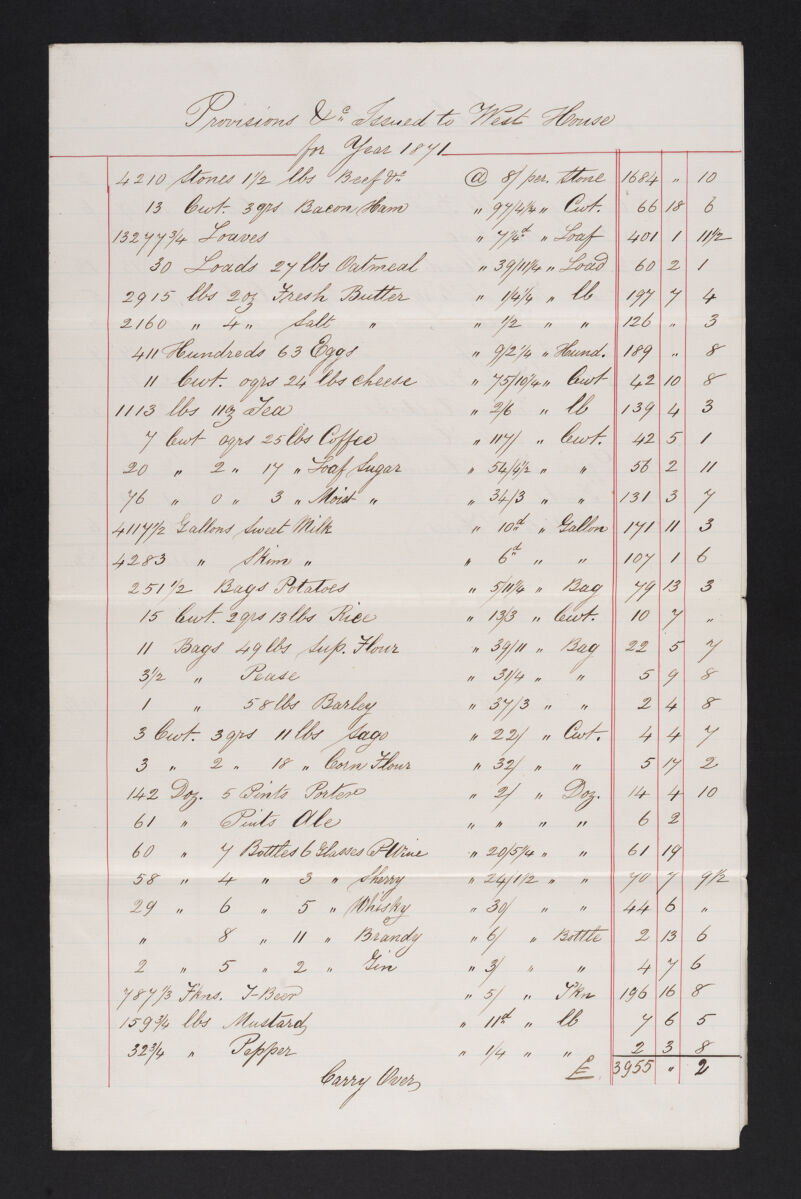 Provisions &c Issued to West House
for Year 1871
4210 Stones 1 1/2 lbs Beef &c @ 8/ per. Stone 1684 " 10
13 Cwt. 3 qrs Bacon Ham " 97/4 1/4 " Cwt. 66 18 6
13277 3/4 Loaves " 7 1/4d " Loaf 401 1 11 1/2
30 Loads 27 lbs Oatmeal " 39/11 1/4 " Load 60 2 1
2915 lbs 2 oz Fresh Butter " 1/4 1/4 " lb 197 7 4
2160 " 4 " Salt " " 1/2 " " 126 " 3
411 Hundreds 63 Eggs " 9/2 1/4 " Hund. 189 " 8
11 Cwt. 0 qrs 24 lbs Cheese " 75/10 1/4 " Cwt 42 10 8
1113 lbs 11 oz Tea " 2/6 " lb 139 4 3
7 Cwt 0 qrs 25 lbs Coffee " 117/ " Cwt. 42 5 1
20 " 2 " 17 " Loaf Sugar " 54/4 1/2 " " 56 2 11
76 " 0 " 3 " Moist " " 34/3 " " 131 3 7
4117 1/2 Gallons Sweet Milk " 10d " Gallon 171 11 3
4283 " Skim " " 6d " " 107 1 6
251 1/2 Bags Potatoes " 5/11 1/4 " Bag 79 13 3
15 Cwt. 2 qrs 13 lbs Rice " 13/3 " Cwt. 10 7 "
11 Bags 49 lbs Sup. Flour " 39/11 " Bag 22 5 7
3 1/2 " Pease " 31/4 " " 5 9 8
1 " 58 lbs Barley " 37/3 " " 2 4 8
3 Cwt. 3 qrs 11 lbs Sago " 22/ " Cwt. 4 4 7
3 " 2 " 18 " Corn Flour " 32/ " " 5 17 2
142 Doz. 5 Pints Porter " 2/ " Doz. 14 4 10
61 " Pints Ale " " " " 6 2
60 " 7 Bottles 6 Glasses P. Wine " 20/5 1/4 " " 61 19
58 " 4 " 3 " Sherry " 24/1 1/2 " " 70 7 9 1/2
29 " 6 " 5 " Whisky " 30/ " " 44 6 "
" 8 " 11 " Brandy " 6/ " Bottle 2 13 6
2 " 5 " 2 " Gin " 3/ " " 4 7 6
787 1/3 Fkns. T-Beer " 5/ " Fkn 196 16 8
159 3/4 lbs Mustard " 11d " lb 7 6 5
32 3/4 " Pepper " 1/4 " " 2 3 8
Carry Over £ 3955 " 2